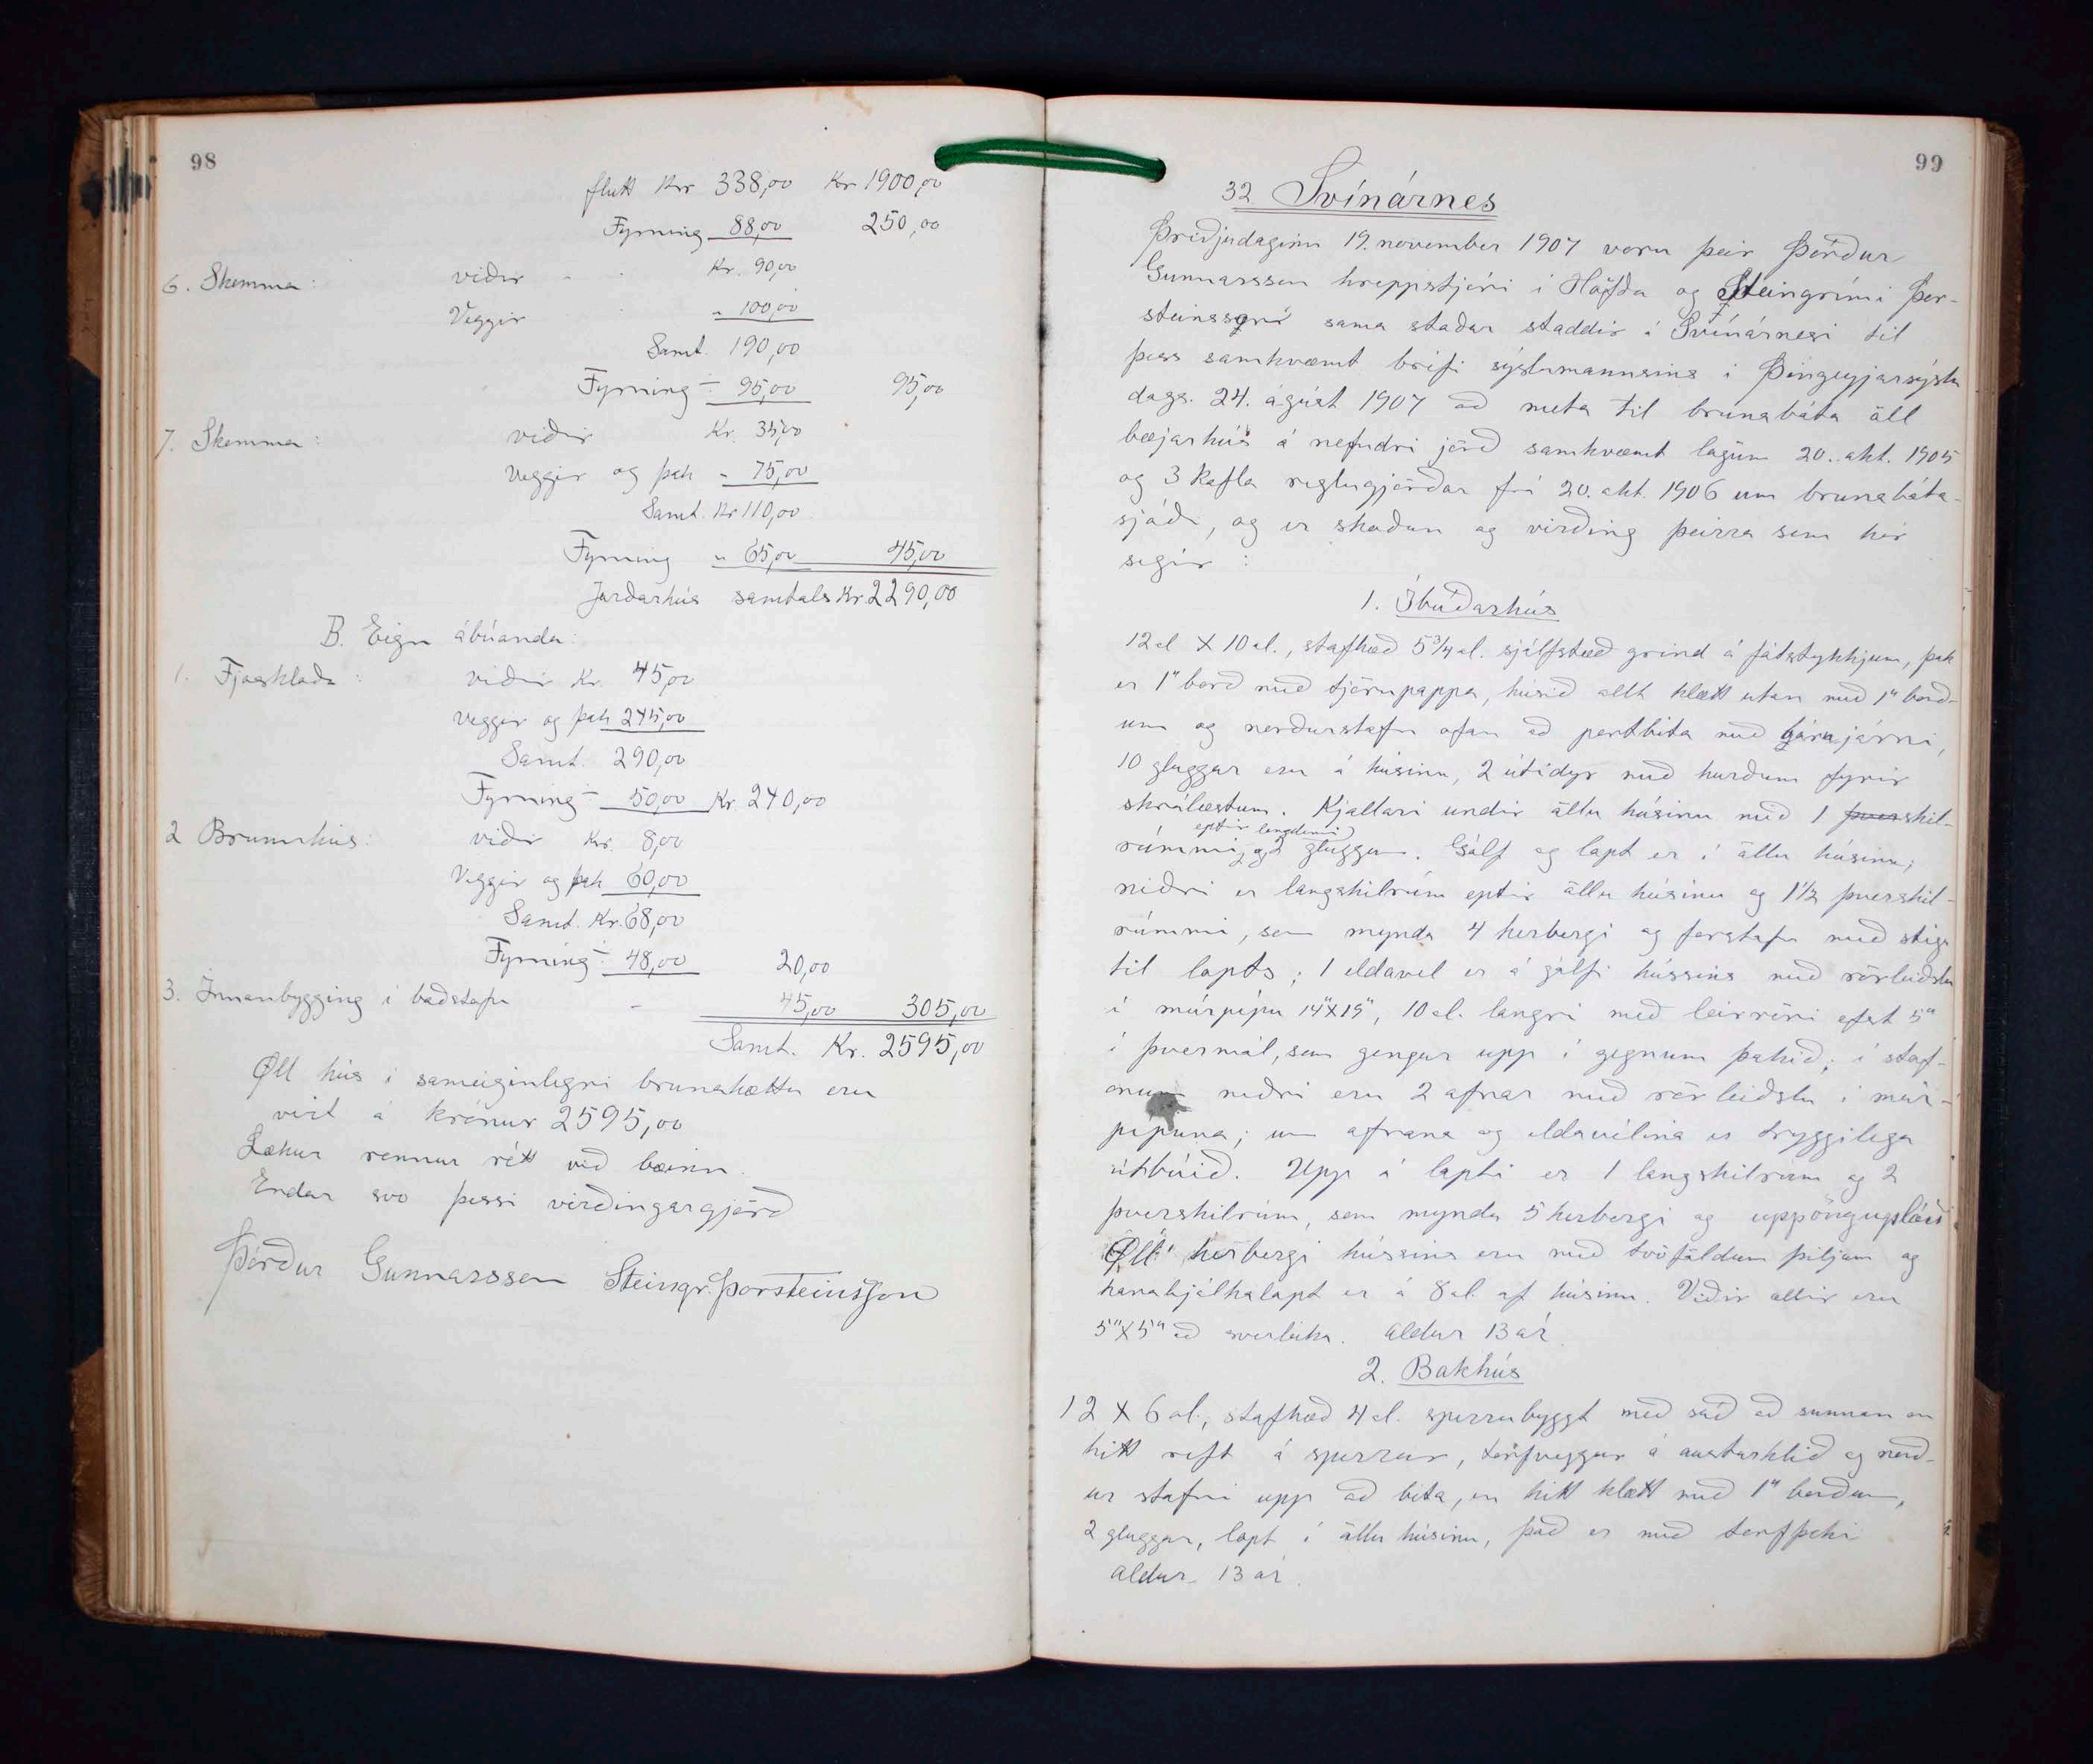 98
flutt Kr 338,00 Kr 1900,00
Fyrning 88,00 250,00
6. Skemma: viðir - - Kr. 90,00
Veggir - 100,00
Samt. 190,00
Fyrning ÷ 95,00 95,00
7. Skemma: viðir Kr. 35,00
Veggir og þak - 75,00
Samt. Kr 110,00
Fyrning " 65,00 45,00
Jarðarhús samtals Kr. 2290,00
B. Eign ábúanda:
1. Fjóshlaða: viðir Kr. 45,00
veggir og þak 245,00
Samt. 290,00
Fyrning ÷ 50,00 Kr. 240,00
2 Brunnhús: viðir Kr. 8,00
Veggir og þak 60,00
Samt. Kr. 68,00
Fyrning ÷ 48,00 20,00
3. Innanbygging í baðstofu - 45,00 305,00
Samt. Kr. 2595,00
Öll hús í sameiginlegri brunahættu eru
virt á krónur 2595,00
Lækur rennur rétt við bæinn.
Endar svo þessi virðingargjörð
Þórður Gunnarsson Steingr. Þorsteinsson
99
32 Svínárnes
Þriðjudaginn 19. november 1907 voru þeir Þórður
Gunnarsson hreppstjóri í Höfða og Steingrími Þor-
steinssyni sama staðar staddir á Svínárnesi til
þess samkvæmt brjefi sýslumannsins í Þingeyjarsýslu
dags. 24. ágúst 1907 að meta til brunabóta öll
bæjarhús á nefndri jörð samkvæmt lögum 20. okt. 1905
og 3 kafla reglugjörðar frá 20. okt. 1906 um brunabóta-
sjóði, og er skoðun og virðing þeirra sem hér
segir:
1. Íbúðarhús
12 al X 10 al., stafhæð 5 3/4 al. sjálfstæð grind á fótstykkjum, þak
er 1" borð með tjörupappa, húsið allt klætt utan með 1" borð-
um og norðurstafn ofan að portbita með bárujárni,
10 gluggar eru á húsinu, 2 útidyr með hurðum fyrir
skrálæstum. Kjallari undir öllu húsinu með 1 þverskil-
eptir lengdinni
rúmmi, og 2 gluggum. Gólf og lopt er í öllu húsinu;
niðri er langskilrúm eptir öllu húsinu og 1 1/2 þverskil-
rúmmi, sem mynda 4 herbergi og forstofu með stiga
til lopts; 1 eldavel er á gólfi hússins með rörleiðslu
í múrpípu 14"X15", 10 al. langri með leirröri efst 5"
í þvermál, sem gengur upp í gegnum þakið; í stof-
onum niðri eru 2 ofnar með rörleiðslu í múr-
pípuna; um ofnana og eldavélina er tryggilega
útbúið. Upp á lopti er 1 langskilrúm og 2
þverskilrúm, sem mynda 5 herbergi og uppöngupláss
Öll herbergi hússins eru með tvöföldum þiljum og
hanabjálkalopt er á 8 al. af húsinu. Viðir allir eru
5"X5" að sverleika. Aldur 13 ár.
2. Bakhús
12 X 6 al., stafhæð 4 al. sperrubyggt með súð að sunnan en
hitt reft á sperrur, torfveggur á austurhlið og norð-
ur stafni upp að bita, en hitt klætt með 1" borðum,
2 gluggar, lopt í öllu húsinu, það er með torfþaki
Aldur 13 ár.